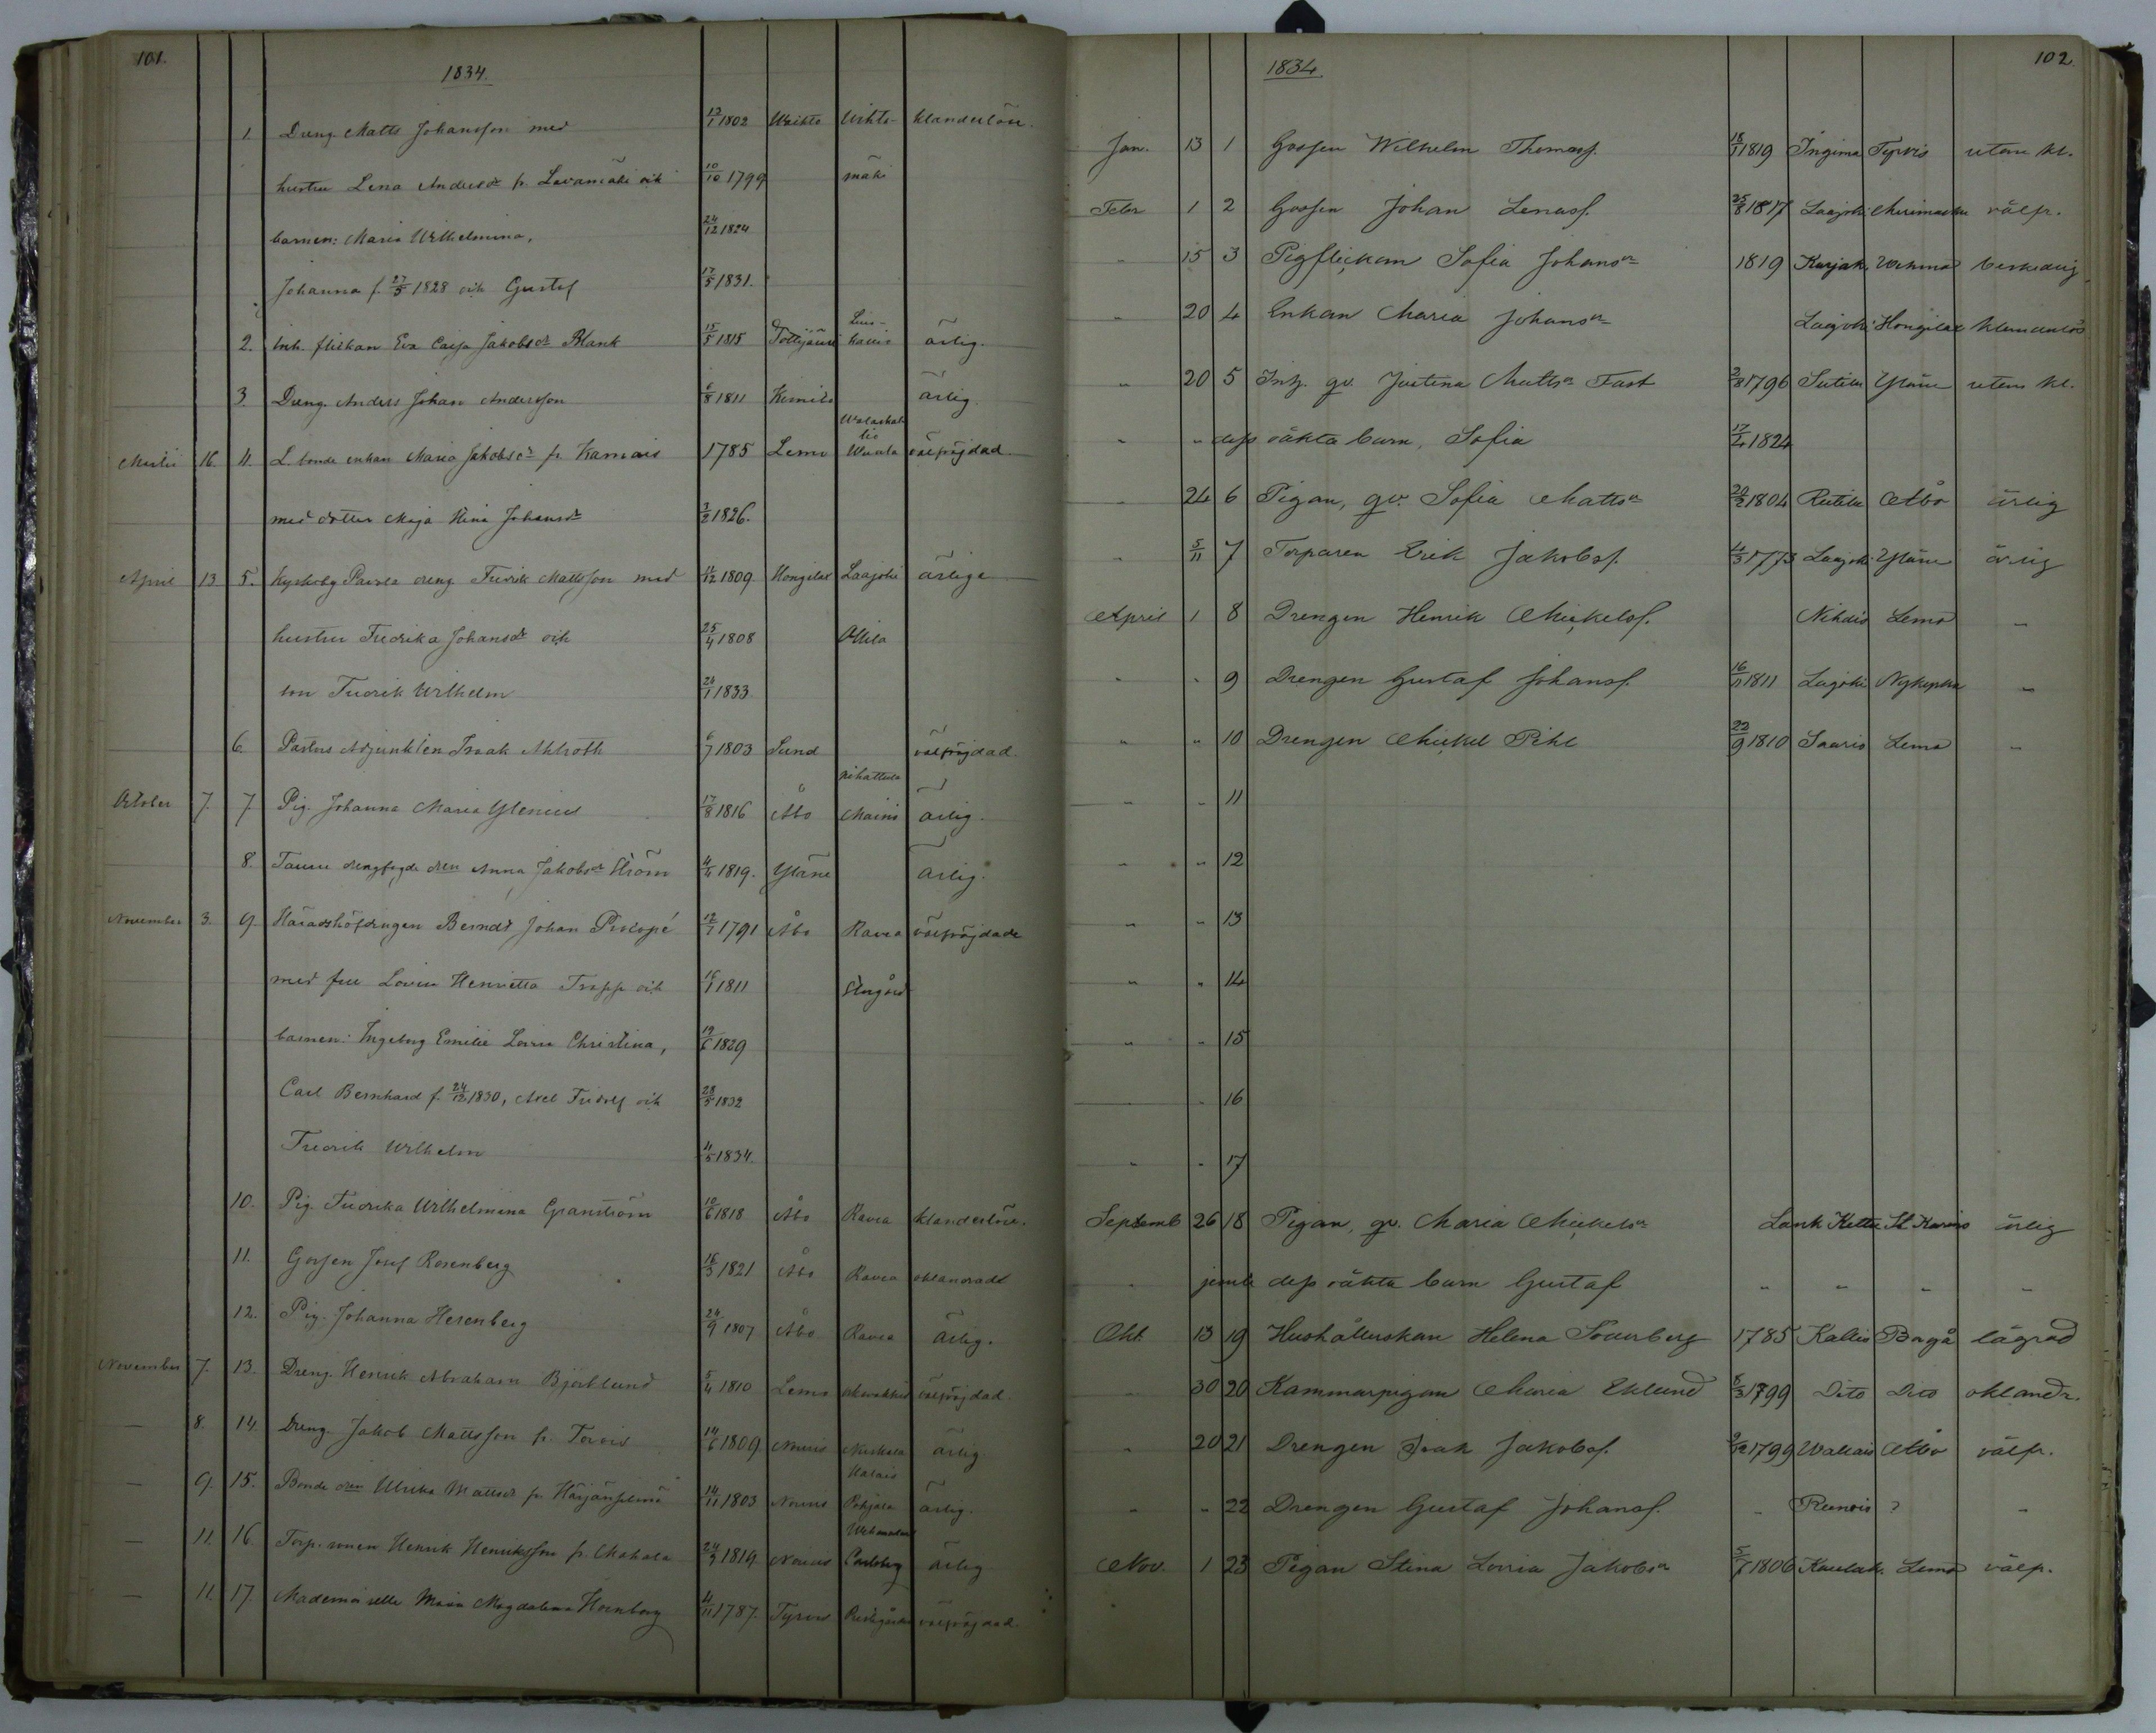 101.
1834.
1. Dreng. Matts Johansson med 12/1 1802 Wirtsanoja
hustru Lena Andersdr fr. Lavamäki och 10/10 1799 mäki
barnen: Maria Wilhelmina, 24/12 1824
Johanna f. 27/5 1828 och Gustaf 17/5 1831.
2. Inh. flickan Eva Caisa Jakobsdr Blank 15/5 1815 ärlig.
3. Dreng. Anders Johan Andersson 6/8 1811 Kimito ärlig.
Martii 16. 4. L. bonde enkan Maria Jakobsdr fr. Karviais 1785 Lemo välfrejdad
med dotter Maja Stina Johansdr 3/2 1826.
April 13 5. Kyrkoby Pavola dreng Fredrik Mattsson med 11/12 1809 Hongilax Laajoki ärlige
hustru Fredrika Johansdr och 25/4 1808 Ollila
son Fredrik Wilhelm 24/1 1833
6. Pastors Adjunkten Isaak Ahlroth 6/7 1803 Sund välfrejdad.
October 7. 7 Pig. Johanna Maria Ylenius 17/8 1816 Åbo ärlig.
8. drengfogde dren Anna Jakobsdr Ström 4/4 1819. Yläne ärlig.
November 3. 9. Häradshöfdingen Berndt Johan Procopé 12/7 1791 Åbo Ravea välfrejdade
med fru Lovisa Henrietta Trapp och 1811 Storgård
barnen: Ingeborg Emilie Lovisa Christina, 19/6 1829
Carl Bernhard f. 24/12 1830, Axel Fridolf och 28/5 1832
Fredrik Wilhelm 11/5 1834.
10. Pig. Fredrika Wilhelmina Granström 10/6 1818 Åbo Ravea klanderlöse.
11. Gossen Josef Rosenberg 18/3 1821 Åbo Ravea oklandrad
12. Pig. Johanna Hesenberg 24/9 1807 Åbo Ravea ärlig.
November 7. 13. Dreng. Henrik Abraham Björklund 5/4 1810 Lemo välfrejdad.
— 8. 14. Dreng. Jakob Mattsson fr. 14/6 1809 Nousis ärlig.
— 9. 15. Bonde dren Ulrika Mattsdr fr. Härjänsilmä 14/11 1803 Nousis Pohjala ärlig.
— 11. 16. Torp. sonen Henrik Henriksson fr. Mahala 24/3 1819 Nousis ärlig
— 11. 17. Mademoiselle Maria Magdalena Hornborg 4/11 1787. Tyrvis Prestgården välfrejdad.
1834. 102.
Jan. 13 1 Gossen Wilhelm Thomass. 18/11 1819 Ingima Tyrvis utan kl.
Febr 1 2 Gossen Johan Lenass. 25/8 1817 Laajoki Merimasku välfr.
" 15 3 Pigflickan Sofia Johansdr 1819 Karjak. Vehmo beskedlig
" 20 4 Enkan Maria Johansdr Laajoki Hongilax klanderlös
" 20 5 Inh. qv. Justina Mattsdr Fast 2/8 1796 Sutila Yläne utan kl.
" " dess oäkta barn, Sofia 17/4 1824
" 24 6 Pigan, qv. Sofia Mattsdr 20/2 1804 Rutila Åbo ärlig
" 5/11 7 Torparen Erik Jakobss. 4/3 1773 Laajoki Yläne ärlig
April 1 8 Drengen Henrik Mickelss. Nihdis Lemo "
" " 9 Drengen Gustaf Johanss. 16/11 1811 Lajoki Nykyrka "
" " 10 Drengen Mickel Pihl 22/9 1810 Saaris Lemo "
" " 11
" " 12
" " 13
" " 14
" " 15
" " 16
" " 17
Septemb 26 18 Pigan, qv. Maria Mickelsdr Lank Ketta St Karins ärlig
" jemte dess oäkta barn Gustaf " " " "
Okt. 13 19 Hushållerskan Helena Söderberg 1785 Kallis Borgå lägrad
" 30 20 Kammarpigan Maria Eklund 8/3 1799 Dito Dito oklandr.
" 20 21 Drengen Isak Jakobss. 9/12 1799 Wallais Åbo välfr.
" " 22 Drengen Gustaf Johanss. " Runois ? "
Nov. 1 23 Pigan Stina Lovisa Jakobsdr 5/7 1806 Kaulak. Lemo välfr.